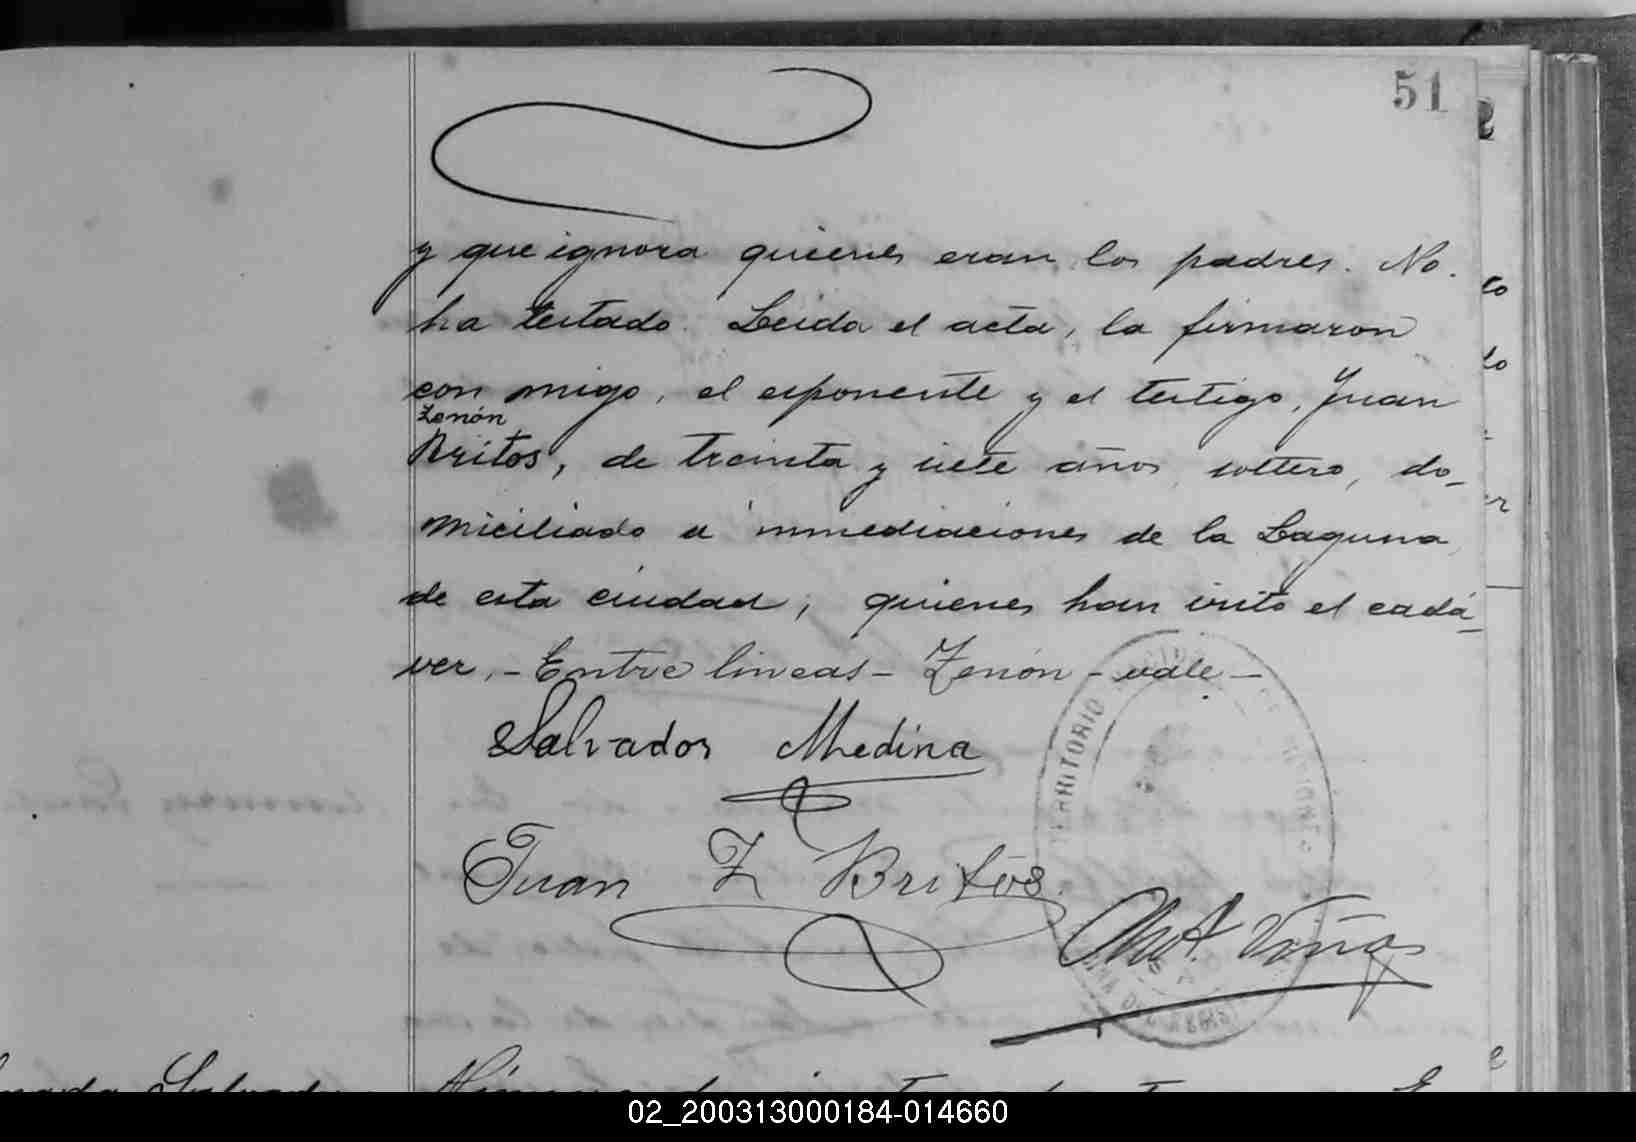 51
y que ignora quienes eran los padres. No.
ha testado. Leida el acta, la firmaron
con migo, el esponente y el testigo, Juan
Zenón
Britos, de treinta y siete años, soltero, do_
miciliado a inmediaciones de la Laguna
de esta ciudad; quienes han visto el cadá_
ver. - Entre lineas - Zenón - vale -
Salvador Medina
Juan Z Britos.
TERRITORIO
02_200313000184-014660